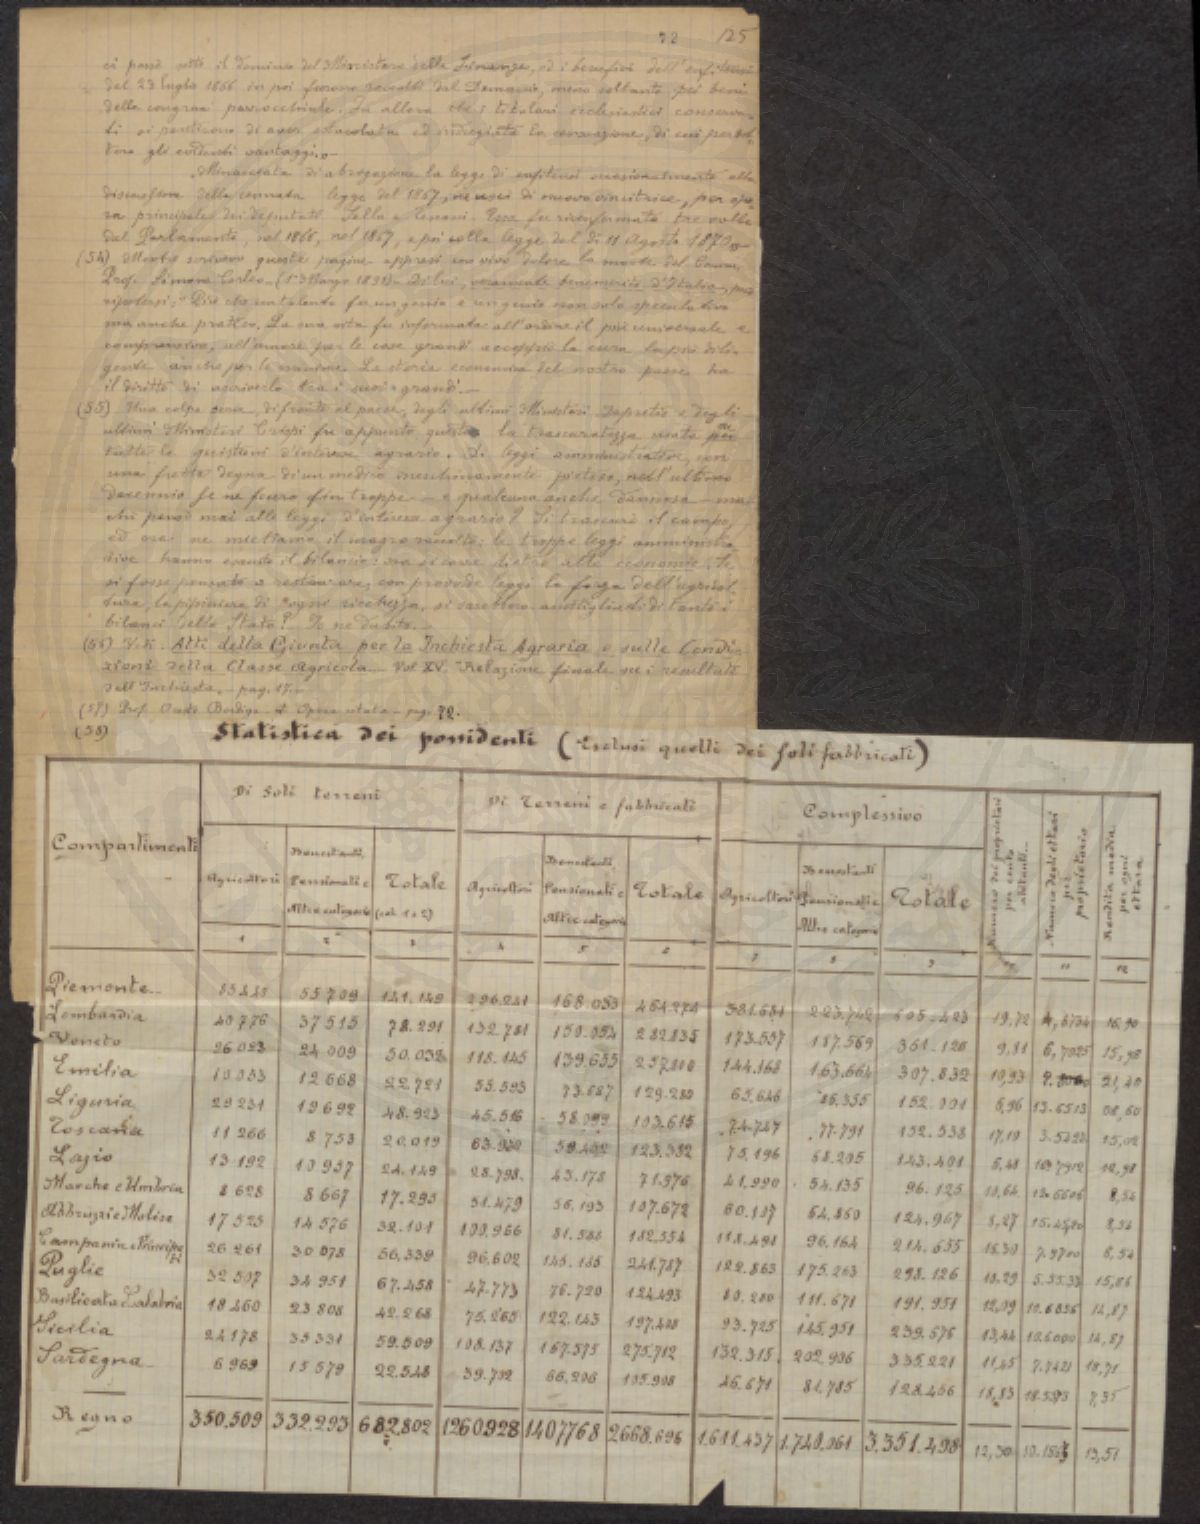 72 125
ci passò sotto il Dominio del Ministero delle Finanze, ed i benefizi dell'enfiteusi
del 23 luglio 1866 in poi furono raccolti dal Demanio, meno soltanto pei beni
delle congrue parrocchiali. Fu allora che i titolari ecclesiastici conserva-
ti si pentirono di aver ostacolata ed indugiata la censuazione, di cui
gli evidenti vantaggi.
Minacciata di abrogazione la legge di enfiteusi occasionalmente alla
discussione della cennata legge del 1867, ne uscì di nuovo vincitrice, per ope-
ra principale dei deputati Sella e . Essa fu riconfermata tre volte
dal Parlamento, nel 1866, nel 1867, e poi colla legge del dì 11 Agosto 1870
(54) Mentre scrivevo queste pagine appresi con vivo dolore la morte del Comm.
Prof. Simone Corleo - (1° Marzo 1891) - Di lui, veramente benemerito d'Italia, può
ripetersi: "Più che un talento fu un genio e un genio non solo speculativo
ma anche pratico. La sua vita fu informata all'ordine il più universale e
comprensivo; all'amore per le cose grandi accoppiò la cura la più dili-
gente anche per le minime. La storia economica del nostro paese ha
il diritto di ascriverlo tra i suoi grandi. -
(55) Una colpa vera, di fronte al paese, degli ultimi Ministeri Depretis e degli
ultimi Ministeri Crispi fu appunto questa la trascuratezza usata per
tutte le quistioni d'interesse agrario. Di leggi amministrative, con
una fretta degna di un medico meschinamente pietoso, nell'ultimo
decennio se ne fecero fin troppe - e qualcuna anche dannosa - ma
chi pensò mai alle leggi d'interesse agrario? Si trascurò il campo,
ed ora ne mietiamo il magro raccolto: le troppe leggi amministra-
tive hanno esausto il bilancio: ora si corre dietro alle economie. Se
si fosse pensato a restaurare, con provvide leggi la forza dell'agricol-
tura, la pipiniera di ogni ricchezza, si sarebbero assottigliati di tanto i
bilanci dello Stato? Io ne dubito. -
(56) Vedi. Atti della Giunta per la Inchiesta Agraria e sulle Condi-
zioni della Classe Agricola - Vol XV. Relazione finale su i resultati
dell'Inchiesta. - pag. 17. -
(57) Prof. Bordiga - Opera citata - pag. 72.
(58) Statistica dei possidenti (Esclusi quelli dei soli fabbricati)
Compartimenti Di Soli terreni Di Terreni e fabbricati Complessivo Numero dei proprietari per cento abitanti Numero degli ettari per proprietario Rendita media per ogni ettaro
Agricoltori Benestanti, Pensionati e Altre categorie Totale (col. 1 e 2) Agricoltori Benestanti Pensionati e Altre categorie Totale Agricoltori Benestanti Pensionati e Altre categorie Totale
1 2 3 4 5 6 7 8 9 11 12
Piemonte 55709 141.149 168.033 464.274 381.681 223.742 605.423 19,72 16,90
Lombardia 40776 37515 78.291 132.781 150.054 282.835 173.557 187.569 361.126 9,81 15,98
Veneto 26023 24009 50.032 118.145 139.655 257.800 144.168 163.664 307.832 10,93 21,40
Emilia 10053 12668 22.721 55.593 73.687 129.280 65.646 86.355 152.001 6,96
Liguria 29231 19692 48.923 45.516 58.099 103.615 74.747 77.791 152.538 17,10 15,02
Toscana 11266 8753 20.019 63.930 59.452 123.382 75.196 68.205 143.401
Lazio 13192 10957 24.149 28.798 43.178 71.976 41.990 54.135 96.125 10,64
Marche e Umbria 8628 8667 17.295 51.479 56.193 107.672 60.107 64.860 124.967
Abbruzzi e Molise 17525 14576 32.101 100.966 81.588 182.554 118.491 96.164 214.655
Campania e Principati 26261 30078 56.339 96.602 145.185 241.787 122.863 175.263 298.126
Puglie 32507 34951 67.458 47.773 76.720 124.493 80.280 111.671 191.951
Basilicata e Calabria 18460 23808 42.268 75.265 122.143 197.408 93.725 145.951 239.676
Sicilia 24178 35331 59.509 108.137 167.575 275.712 132.315 202.906 335.221 11,45
Sardegna 6969 15579 22.548 39.702 66.206 105.908 46.671 81.785 128.456 18,83 7,35
Regno 350.509 332.293 682.802 1260928 1407768 2668.696 1.611.437 1.740.061 3.351.498 12,30 13,51